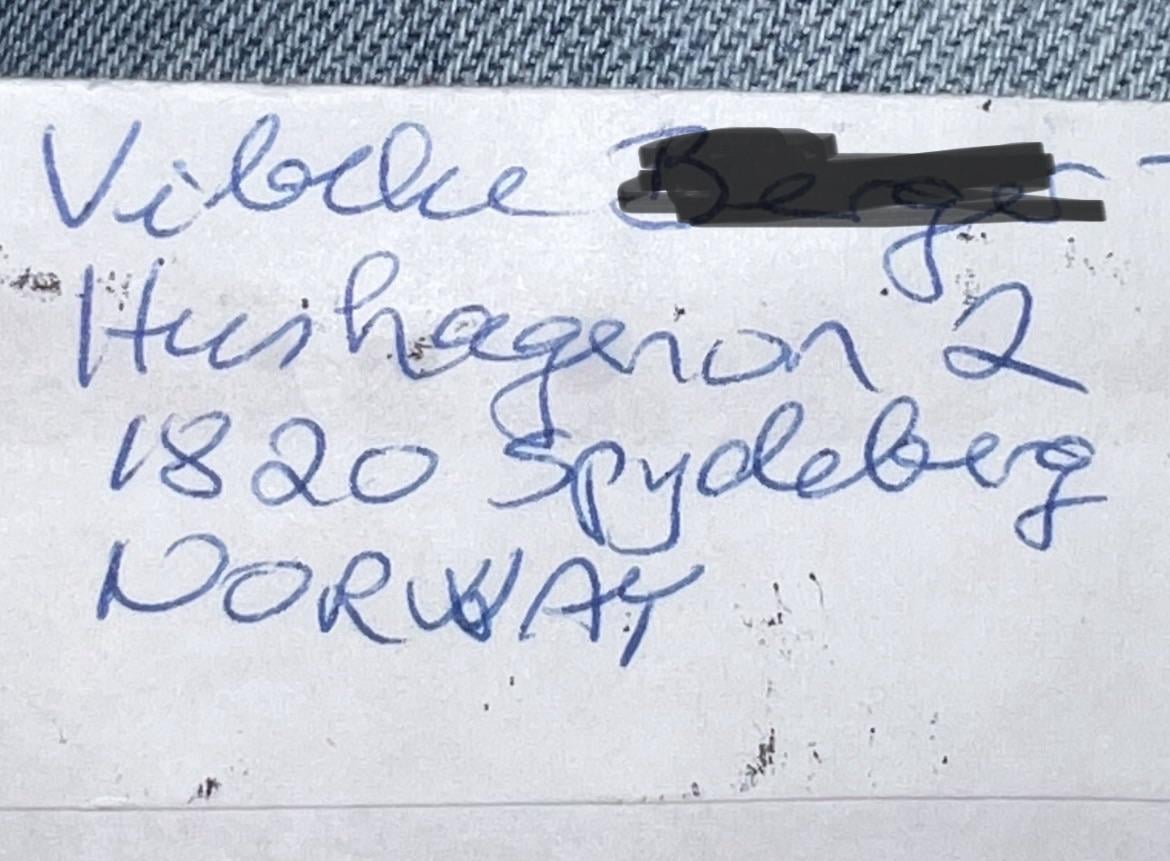 Vibeke
Hushagenon 2
1820 Spydeberg
NORWAY